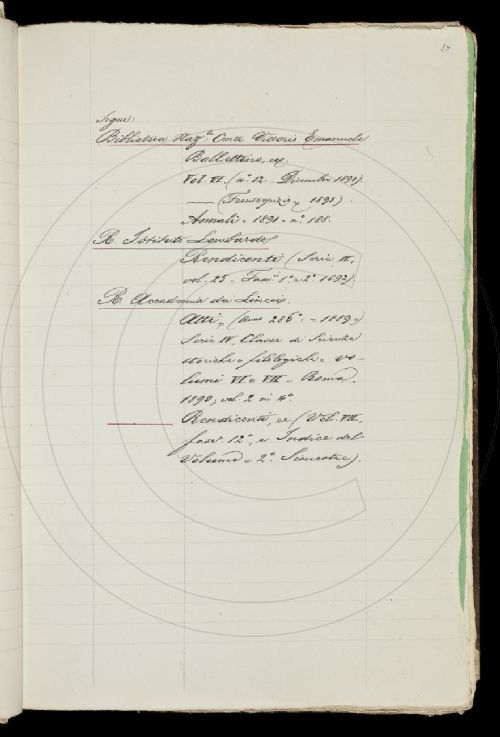 84
Segue:
Biblioteca Naz.e Centr. Vittorio Emanuele
Bollettino, ec.
Vol. VI. (n.° 12. Dicembre 1891).
—— (Frontespizio 1891).
Annali - 1891 - n.° 188.
R. Istituto Lombardo
Rendiconti (Serie II.
vol. 25 - Fasc. 1° e 2° 1892).
R. Accademia dei Lincei.
Atti, (Anno 286° - 1889)
Serie IV. Classe di Scienze
storiche e filologiche - vo-
lumi VI e VII - Roma,
1890, vol. 2 in 4°.
—— Rendiconti, ec (Vol. VII,
fasc. 12°, e Indice del
Volume - 2° Semestre).